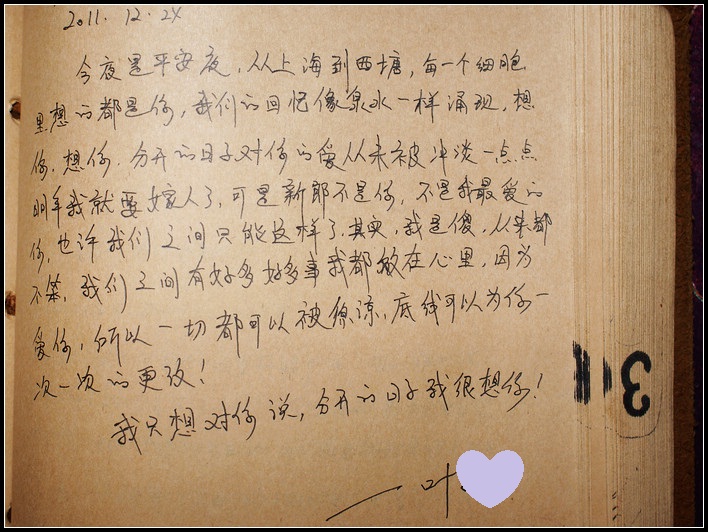 2011.12.24
今夜是平安夜，从上海到西塘，每一个细胞
里想的都是你，我们的回忆像泉水一样涌现，想
你，想你。分开的日子对你的爱从未被冲淡一点点
明年我就要嫁人了，可是新郎不是你，不是我最爱的
你，也许我们之间只能这样了，其实，我是傻，从来都
不笨，我们之间有好多好多事我都放在心里，因为
爱你，所以一切都可以被原谅，底线可以为你一
次一次的更改！
我只想对你说，分开的日子我很想你！
——叶
3